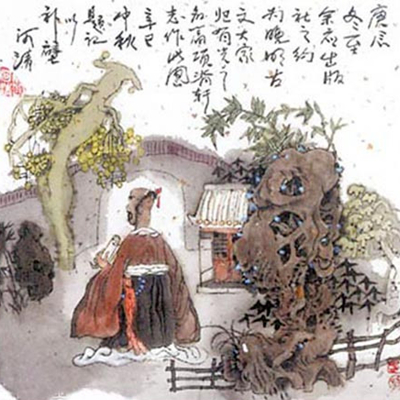 庚辰
冬至
余应出版
社之约
为晚明古
文大家
归有光之
项脊轩
志作此图
辛巳
仲秋
题记
以
补壁